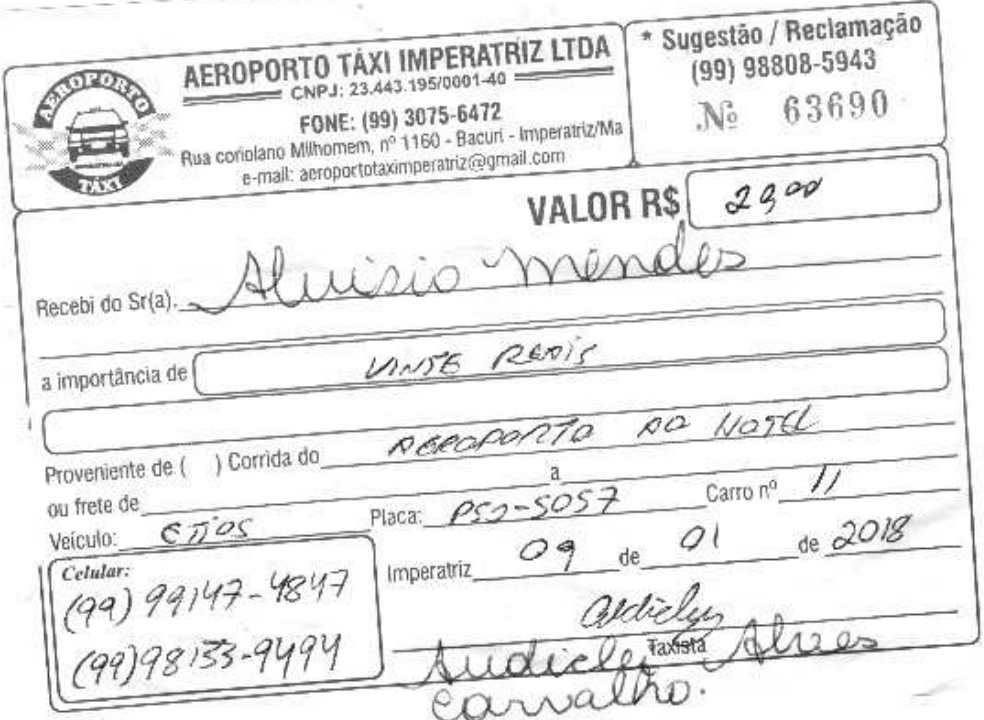 AEROPORTO
TÁXI
AEROPORTO TÁXI IMPERATRIZ LTDA
CNPJ: 23.443.195/0001-40
FONE: (99) 3075-6472
Rua coriolano Milhomem, nº 1160 - Bacuri - Imperatriz/Ma
e-mail: aeroportotaximperatriz@gmail.com
* Sugestão / Reclamação
(99) 98808-5943
Nº 63690
VALOR R$
Recebi do Sr(a). Aluisio Mendes
a importância de VINTE REAIS
Proveniente de ( ) Corrida do AEROPORTO AO HOTEL
ou frete de a
Veículo: ETIOS Placa: Carro nº 11
Imperatriz 09 de 01 de 2018
Celular:
(99) 99147-4847
(99) 98133-9494
Taxista
Audiclei Alves
Carvalho.